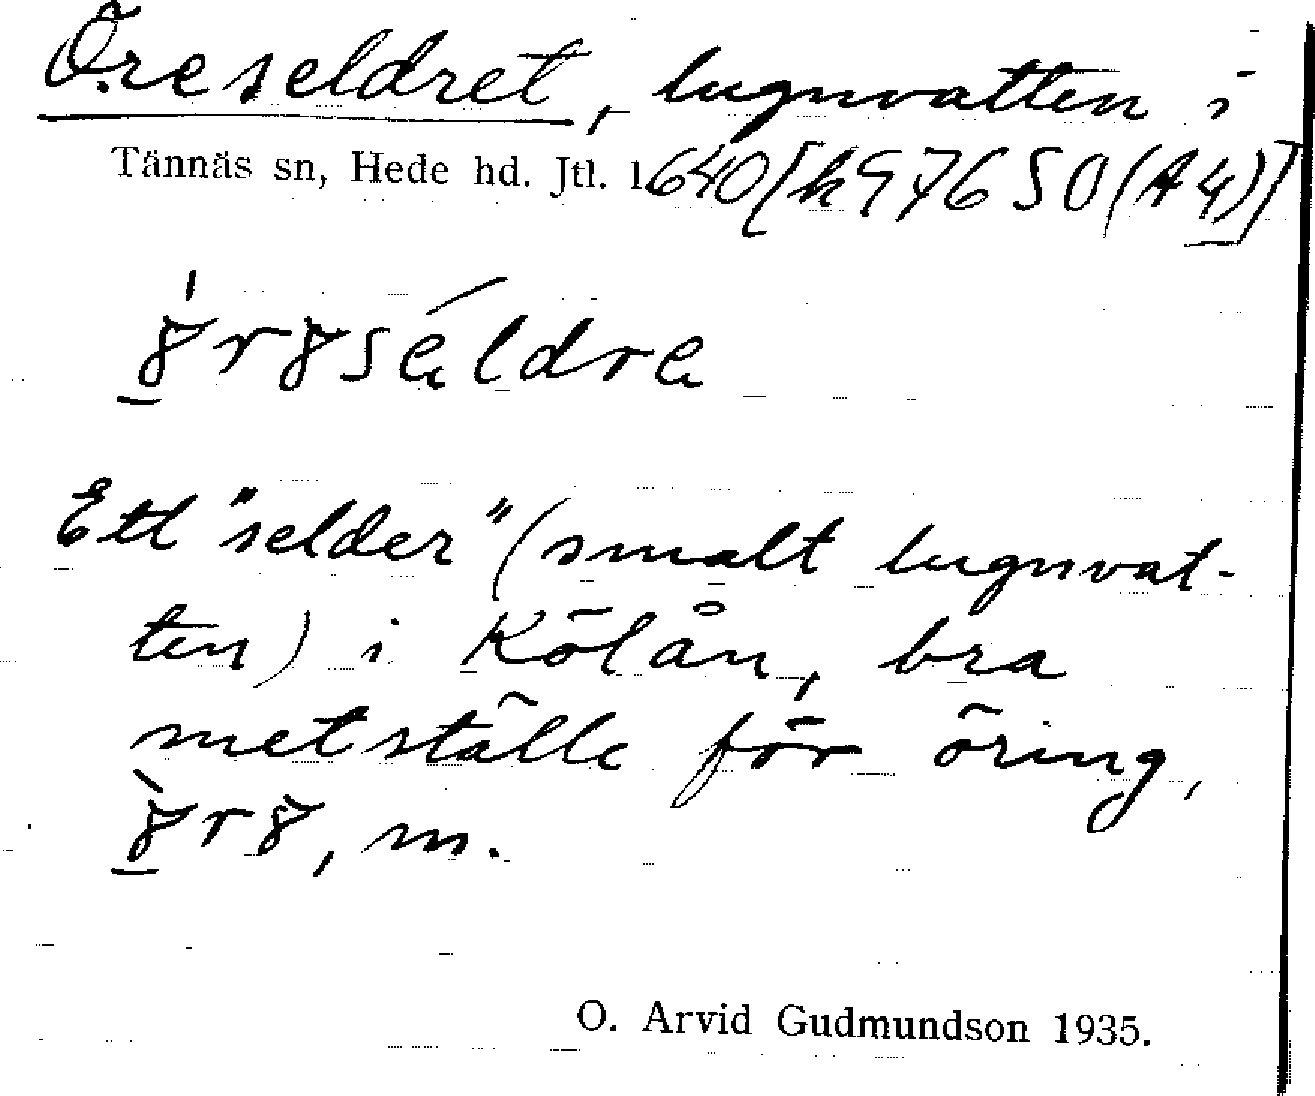 Öreseldret, lugnvatten i
Tännäs sn, Hede hd. Jtl. l.
Ett "selder" (smalt lugnvat-
ten) i Kölån, bra
metställe för öring,
m.
O. Arvid Gudmundson 1935.